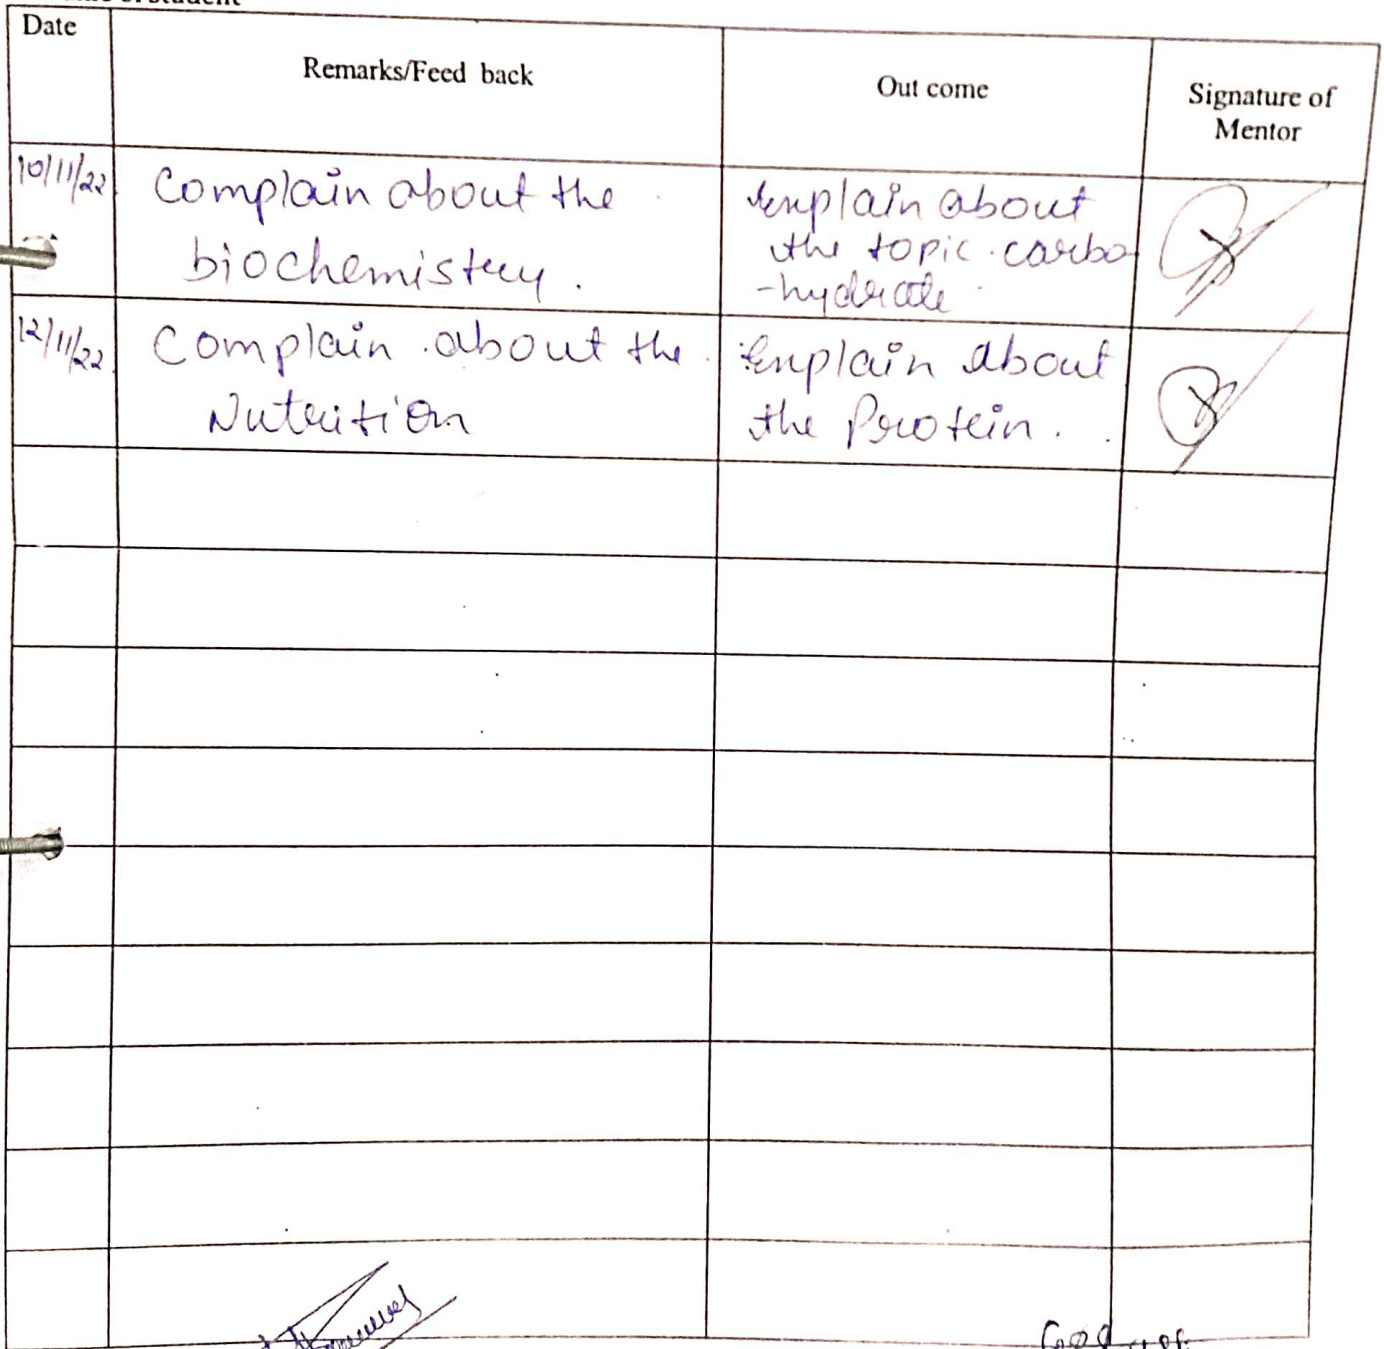 student
Date
Remarks/Feed back
Out come
Signature of
Mentor
10/11/22
Complain about the
biochemistry.
Explain about
the topic carbo
-hydrate
12/11/22
Complain about the
Nutrition
Explain about
the Protein.